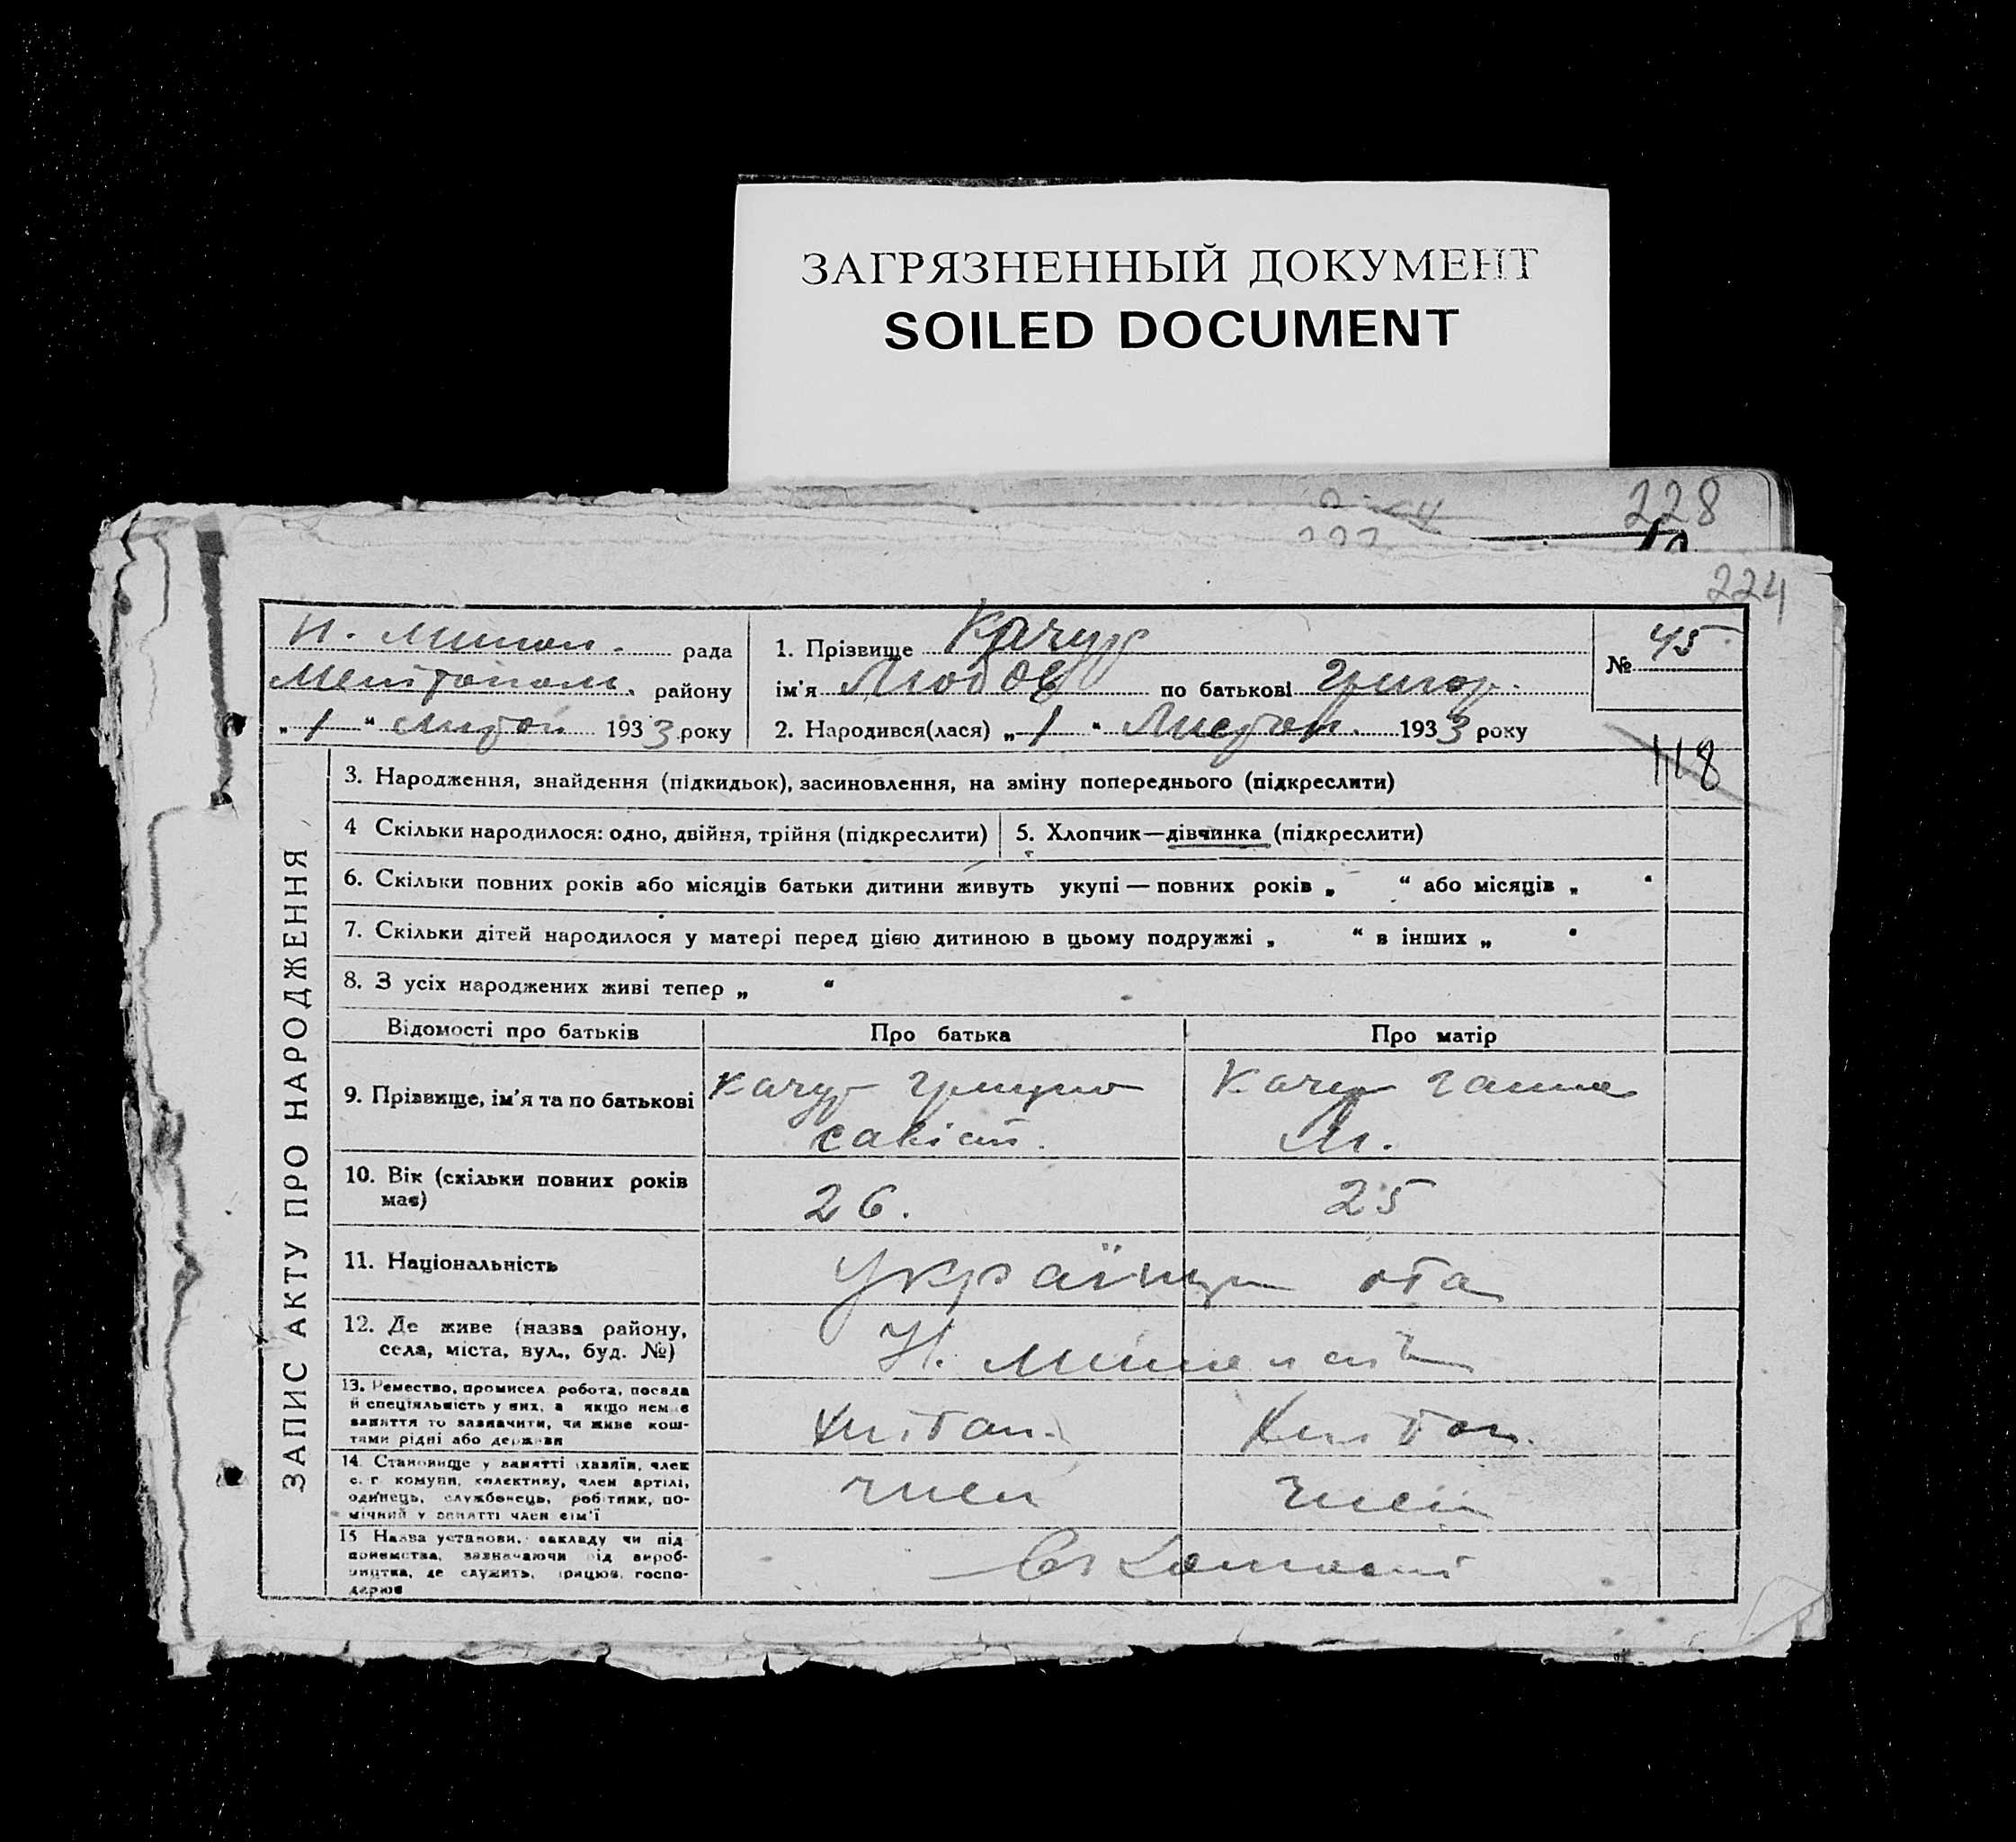 ЗАГРЯЗНЕННЫЙ ДОКУМЕНТ
SOILED DOCUMENT
228
224
рада
району
„ 1 “ 1933 року
1. Прізвище Качур
ім'я Любов по батькові Григор.
2. Народився(лася) „ 1 “ Листоп. 1933 року
№ 45
118
ЗАПИС АКТУ ПРО НАРОДЖЕННЯ
3. Народження, знайдення (підкидьок), засиновлення, на зміну попереднього (підкреслити)
4 Скільки народилося: одно, двійня, трійня (підкреслити)
5. Хлопчик—дівчинка (підкреслити)
6. Скільки повних років або місяців батьки дитини живуть укупі — повних років „ “ або місяців „ “
7. Скільки дітей народилося у матері перед цією дитиною в цьому подружжі „ “ в інших „ “
8. З усіх народжених живі тепер „ “
Відомості про батьків Про батька Про матір
9. Прізвище, ім'я та по батькові
Качур Качур Ганна
М.
10. Вік (скільки повних років
має)
26. 25
11. Національність
12. Де живе (назва району,
села, міста, вул., буд. №)
13. Ремество, промисел, робота, посада
й спеціяльність у них, а якщо немає
заняття то зазначити, чи живе кош-
тами рідні або держави
14. Становище у занятті (хазяїн, член
с. г. комуни, колективу, член артілі,
одинець, службовець, робітник, по-
мічний у занятті член сім'ї
член член
15 Назва установи, закладу чи під
приємства, зазначаючи від вироб-
ництва, де служить, працює, госпо-
дарює